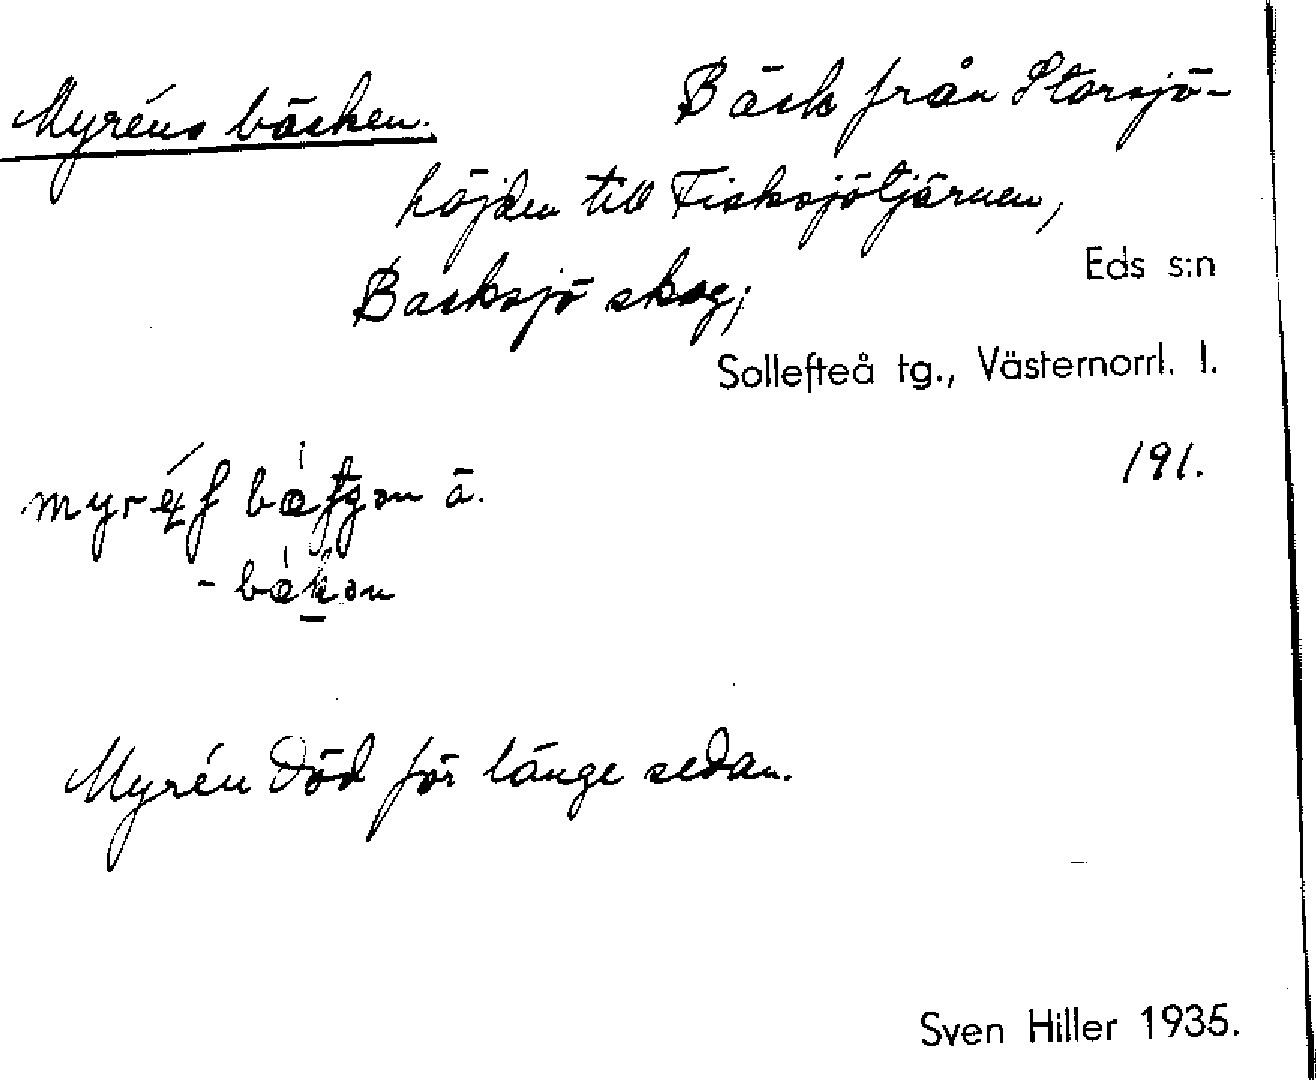 Myréns bäcken.
Bäck från Storsjö-
höjden till Fisksjötjärnen,
Backsjö skog;
Eds s:n
Sollefteå tg., Västernorrl. l.
191.
ä.
Myrén död för länge sedan.
Sven Hiller 1935.